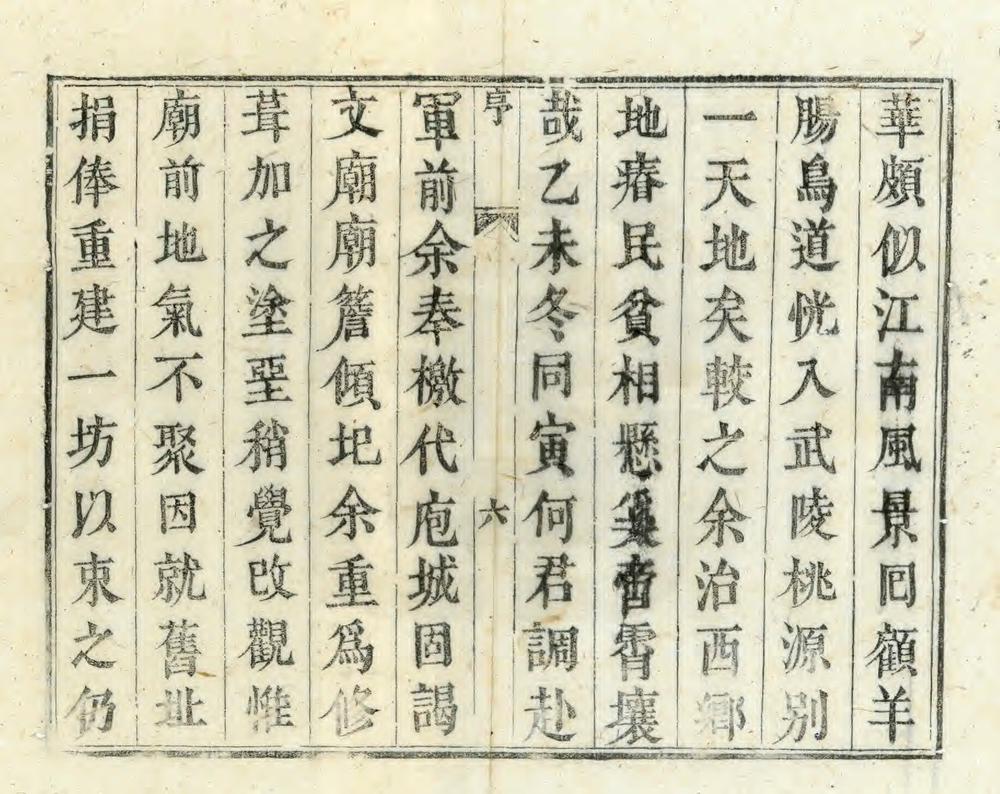 華頗似江南風景囘顧羊
腸鳥道恍入武陵桃源别
一天地矣較之余治西鄉
地瘠民貧相懸奚啻霄壤
哉乙未冬同寅何君調赴
亭
六
軍前余奉檄代庖城固謁
文廟廟簷傾圮余重爲修
葺加之塗堊稍覺改觀惟
廟前地氣不聚因就舊址
捐俸重建一坊以束之仍